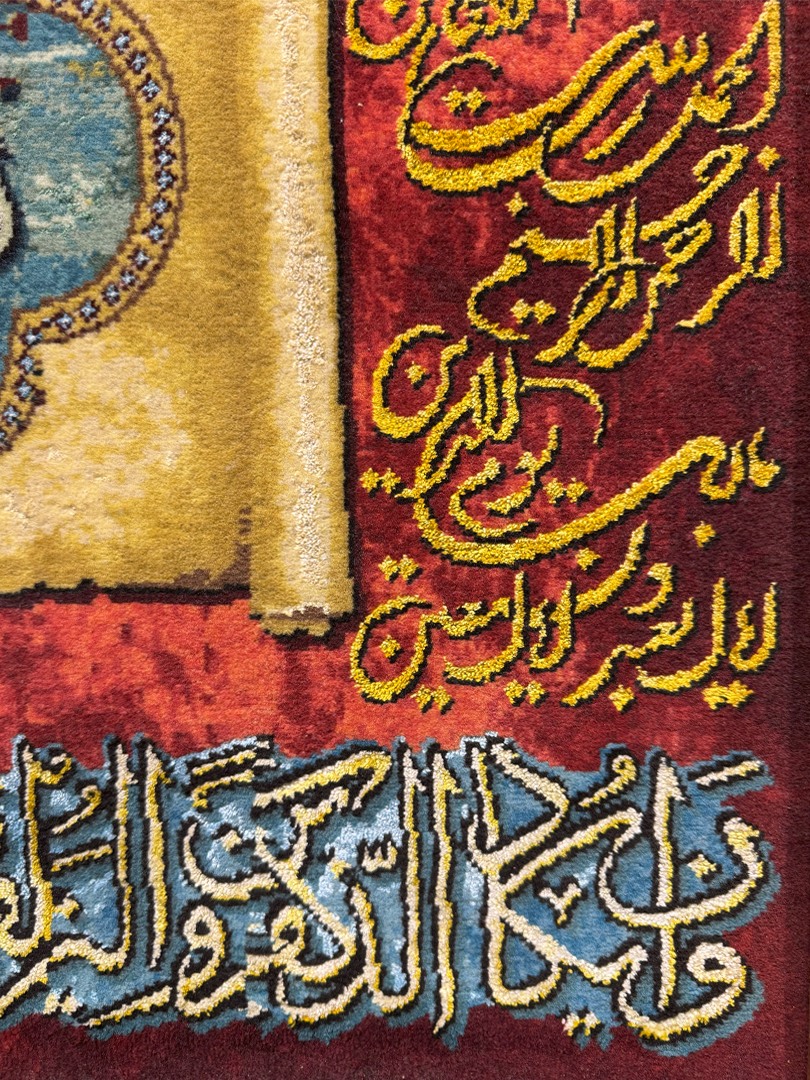 الحمد لله رب العالمين
الرحمن الرحيم
مالك يوم الدين
اياك نعبد و اياك نستعين
وَإِن يكاد الّذين كفروا